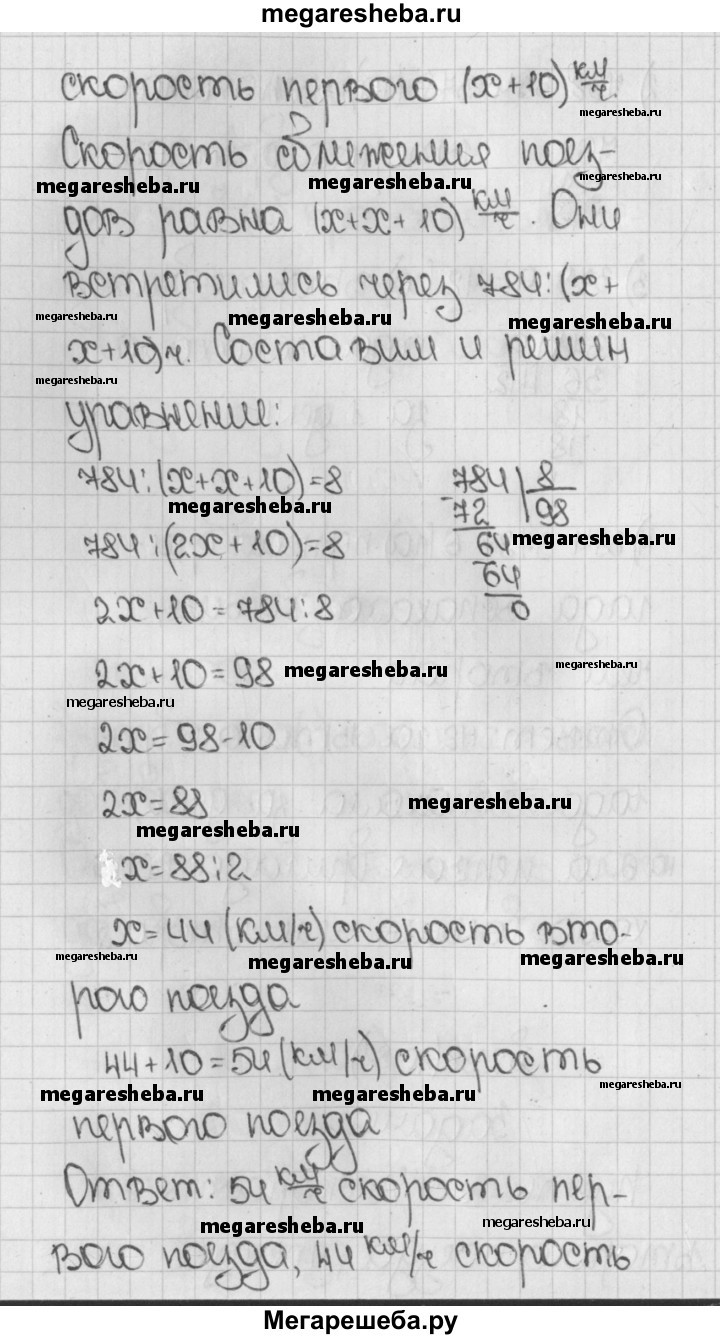 megaresheba.ru
скорость первого (x+10) км/ч.
megaresheba.ru
Скорость сближения поез-
megaresheba.ru megaresheba.ru megaresheba.ru
дов равна (x+x+10) км/ч. Они
встретились через 784:(x+
megaresheba.ru megaresheba.ru megaresheba.ru
x+10)ч. Составим и решим
megaresheba.ru
уравнение:
784:(x+x+10)=8 784 | 8
megaresheba.ru 72 98
784:(2x+10)=8 64 megaresheba.ru
64
2x+10=784:8 0
2x+10=98 megaresheba.ru megaresheba.ru
megaresheba.ru
2x=98-10
2x=88 megaresheba.ru
megaresheba.ru
x=88:2
x=44 (км/ч) скорость вто-
megaresheba.ru megaresheba.ru megaresheba.ru
рого поезда
44+10=54 (км/ч) скорость
megaresheba.ru megaresheba.ru megaresheba.ru
первого поезда
Ответ: 54 км/ч скорость пер-
megaresheba.ru megaresheba.ru
вого поезда, 44 км/ч скорость
Мегарешеба.ру